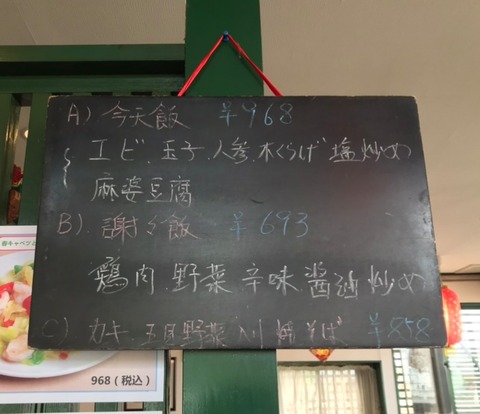 A) 今天飯 ¥968
エビ、玉子、人参、木くらげ 塩炒め
麻婆豆腐
B) 謝々飯 ¥693
鶏肉、野菜 辛味 醤油 炒め
C) カキ、五目野菜 入り 焼そば ¥858
春キャベツ
968(税込)